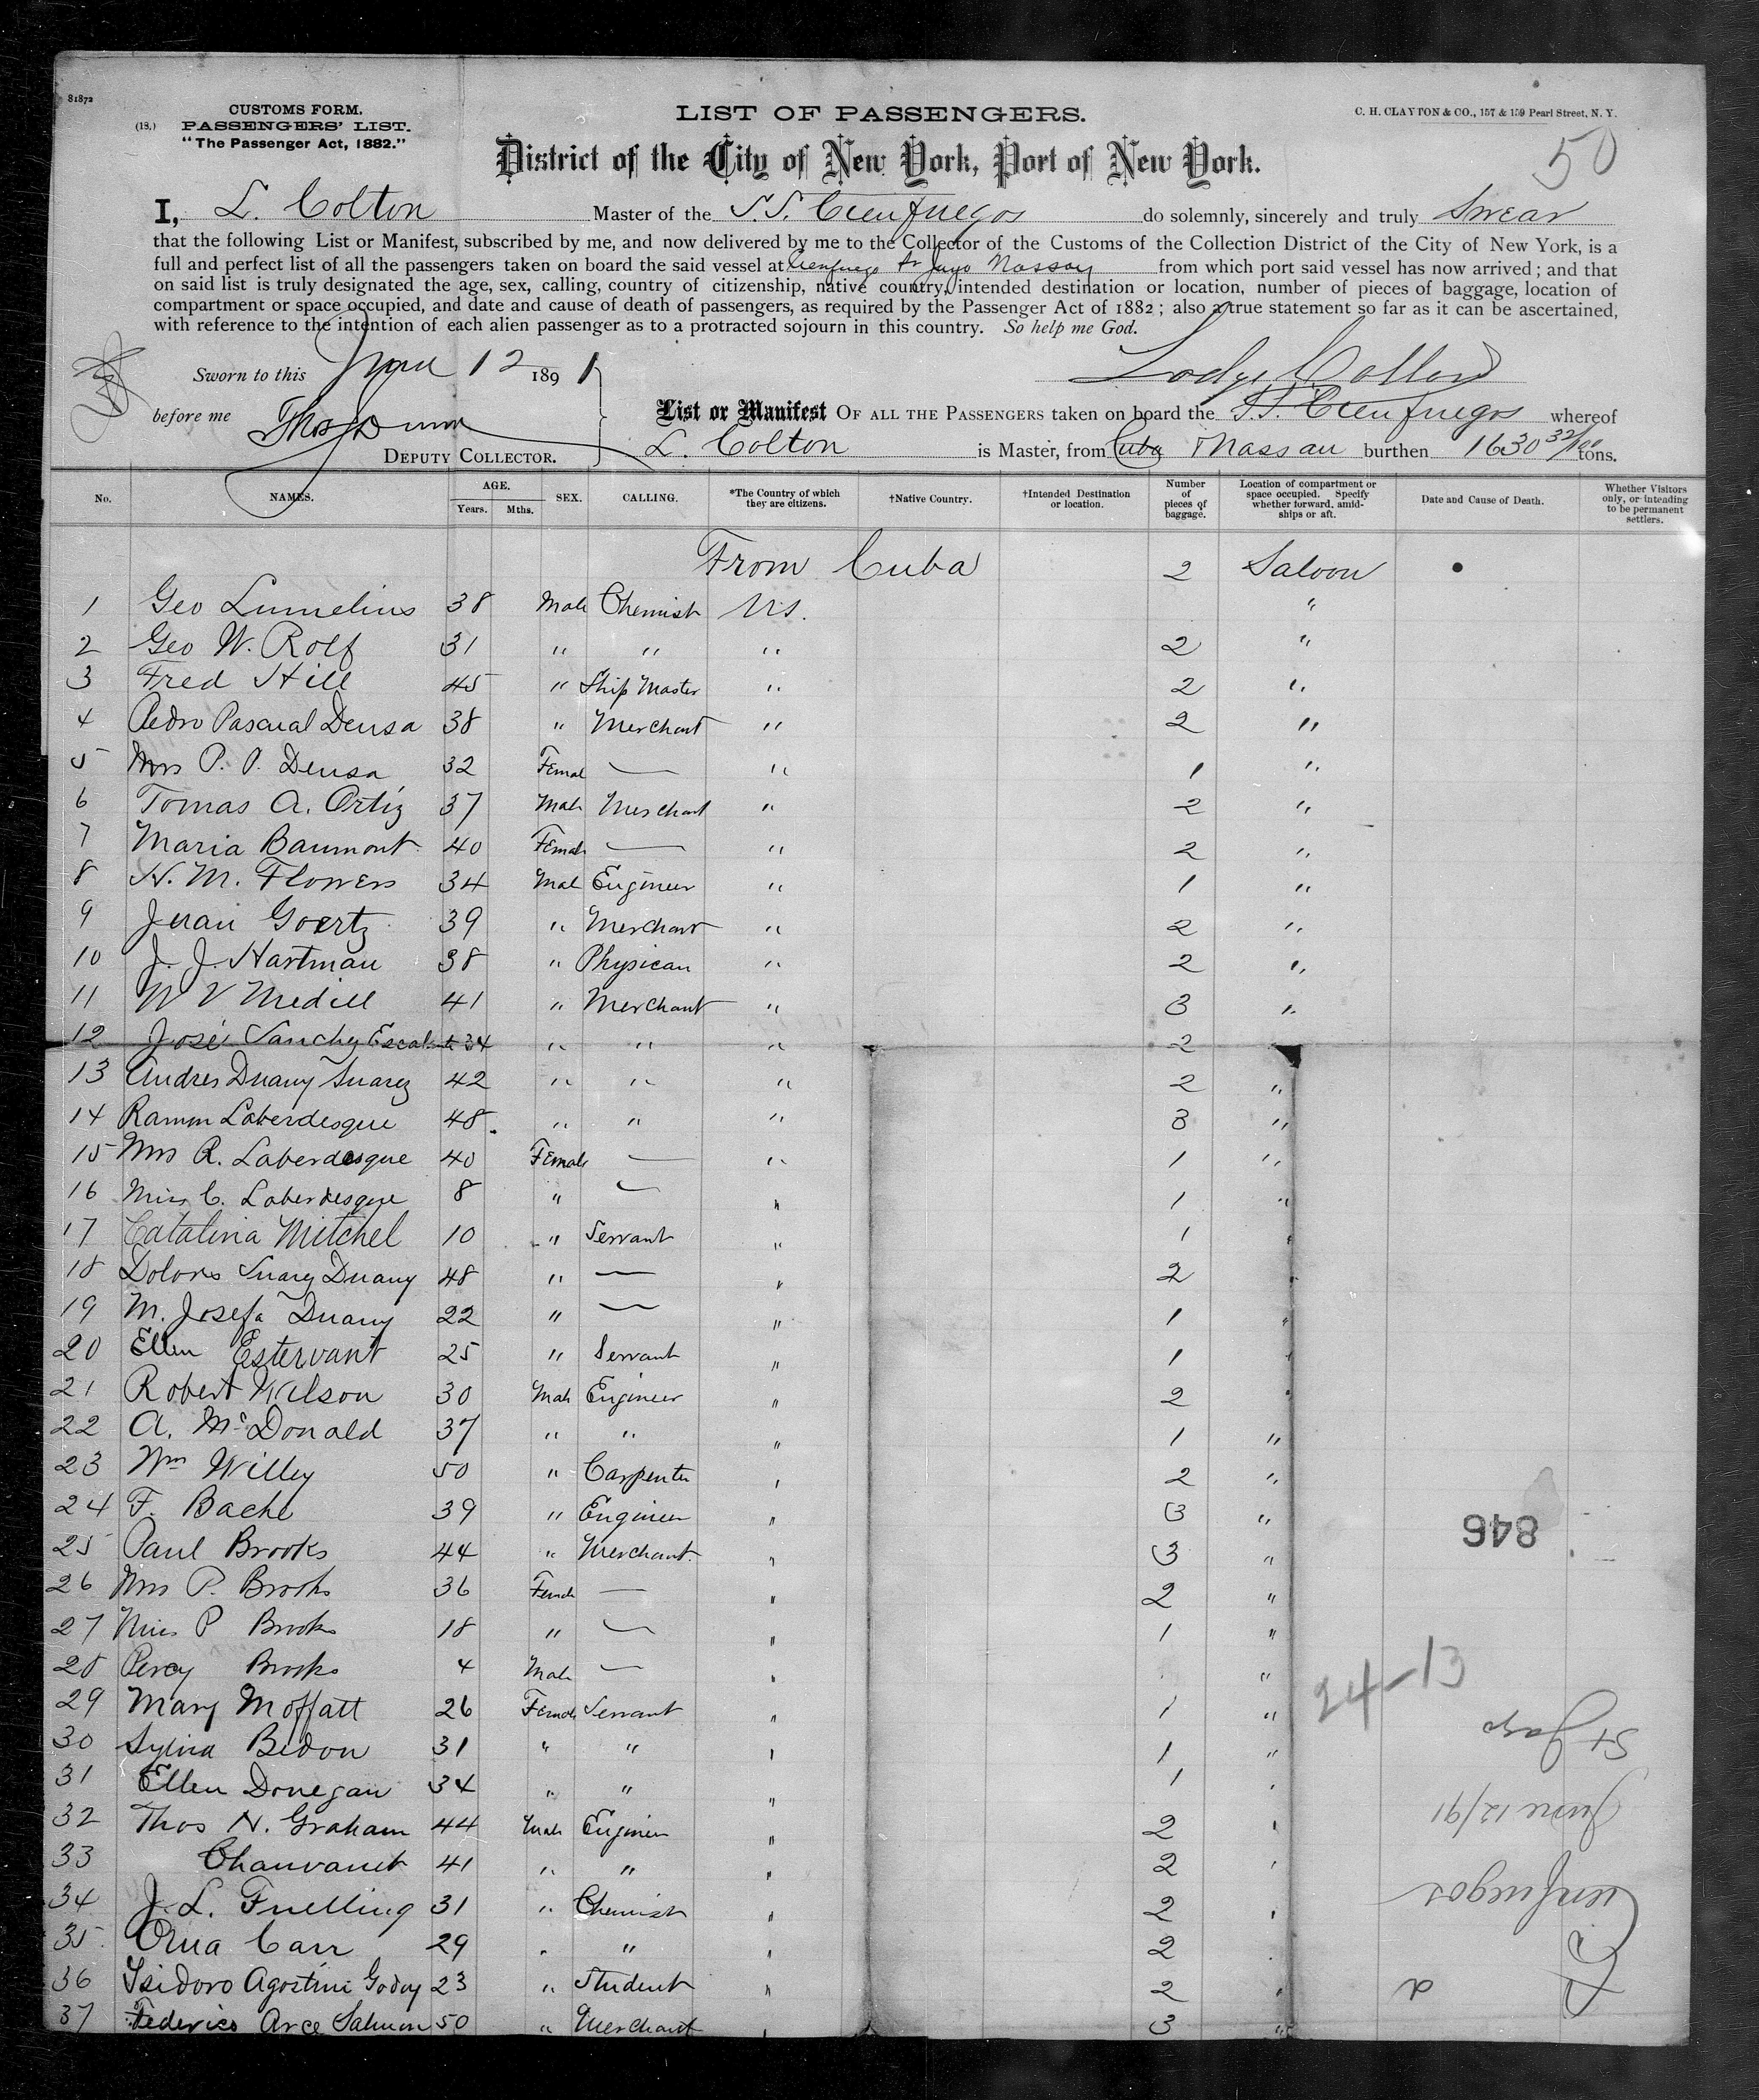 81872
CUSTOMS FORM.
(18.) PASSENGERS' LIST.
"The Passenger Act, 1882."
LIST OF PASSENGERS.
C. H. CLAYTON & CO., 157 & 159 Pearl Street, N. Y.
50
District of the City of New York, Port of New York.
I, L. Colton Master of the S.S. Cienfuegos do solemnly, sincerely and truly Swear
that the following List or Manifest, subscribed by me, and now delivered by me to the Collector of the Customs of the Collection District of the City of New York, is a
full and perfect list of all the passengers taken on board the said vessel at Cienfuego St Jago Nassau from which port said vessel has now arrived; and that
on said list is truly designated the age, sex, calling, country of citizenship, native country, intended destination or location, number of pieces of baggage, location of
compartment or space occupied, and date and cause of death of passengers, as required by the Passenger Act of 1882; also a true statement so far as it can be ascertained,
with reference to the intention of each alien passenger as to a protracted sojourn in this country. So help me God.
Sworn to this June 12 1891
Colton
before me Thos Dunn
DEPUTY COLLECTOR.
List or Manifest OF ALL THE PASSENGERS taken on board the S.S. Cienfuegos whereof
L. Colton is Master, from Cuba Nassau burthen 1630 32/100 tons.
No. NAMES. AGE. Years. Mths. SEX. CALLING. *The Country of which they are citizens. †Native Country. †Intended Destination or location. Number of pieces of baggage. Location of compartment or space occupied. Specify whether forward, amidships or aft. Date and Cause of Death. Whether Visitors only, or intending to be permanent settlers.
From Cuba 2 Saloon
1 Geo Lumelius 38 Male Chemist U.S. "
2 Geo W. Rolf 31 " " " 2 "
3 Fred Hill 45 " Ship Master " 2 "
4 Pedro Pascual Deusa 38 " Merchant " 2 "
5 Mrs P. P. Deusa 32 Femal — " 1 "
6 Tomas A. Ortiz 37 Male Merchant " 2 "
7 Maria Baumont 40 Female — " 2 "
8 H. M. Flowers 34 Male Engineer " 1 "
9 Juan Goertz 39 " Merchant " 2 "
10 J. J. Hartman 38 " Physican " 2 "
11 W V Medill 41 " Merchant " 3 "
12 José Sanchy Escalante 34 " " " 2
13 Andres Duany Suarez 42 " " " 2 "
14 Ramon Laberdesque 48 " " " 3 "
15 Mrs R. Laberdesque 40 Female — " 1 "
16 Miss C. Laberdesque 8 " — " 1 "
17 Catalina Mitchel 10 " Servant " 1 "
18 Dolores Suarez Duany 48 " — " 2
19 M. Josefa Duany 22 " — " 1 "
20 Ellen Estervant 25 " Servant " 1 "
21 Robert Wilson 30 Male Engineer " 2 "
22 A. McDonald 37 " " " 1 "
23 Wm Willey 50 " Carpenter " 2 "
24 F. Bache 39 " Engineer " 3 "
25 Paul Brooks 44 " Merchant " 3 "
26 Mrs P. Brooks 36 Female — " 2 "
27 Miss P Brooks 18 " — " 1 "
28 Percy Brooks 4 Male — " "
29 Mary Moffatt 26 Female Servant " 1 "
30 Sylvia Bedon 31 " " " 1 "
31 Ellen Donegan 34 " " " 1 "
32 Thos N. Graham 44 Male Engineer " 2 "
33 Chauvanet 41 " " " 2 "
34 J. L. Fuelling 31 " Chemist " 2 "
35 Orua Carr 29 " " " 2
36 Isidoro Agostini Godoy 23 " Student " 2 "
37 Federico Arce Salmon 50 " Merchant " 3 "
846
24-13
St Jago
June 12/91
Cienfuegos